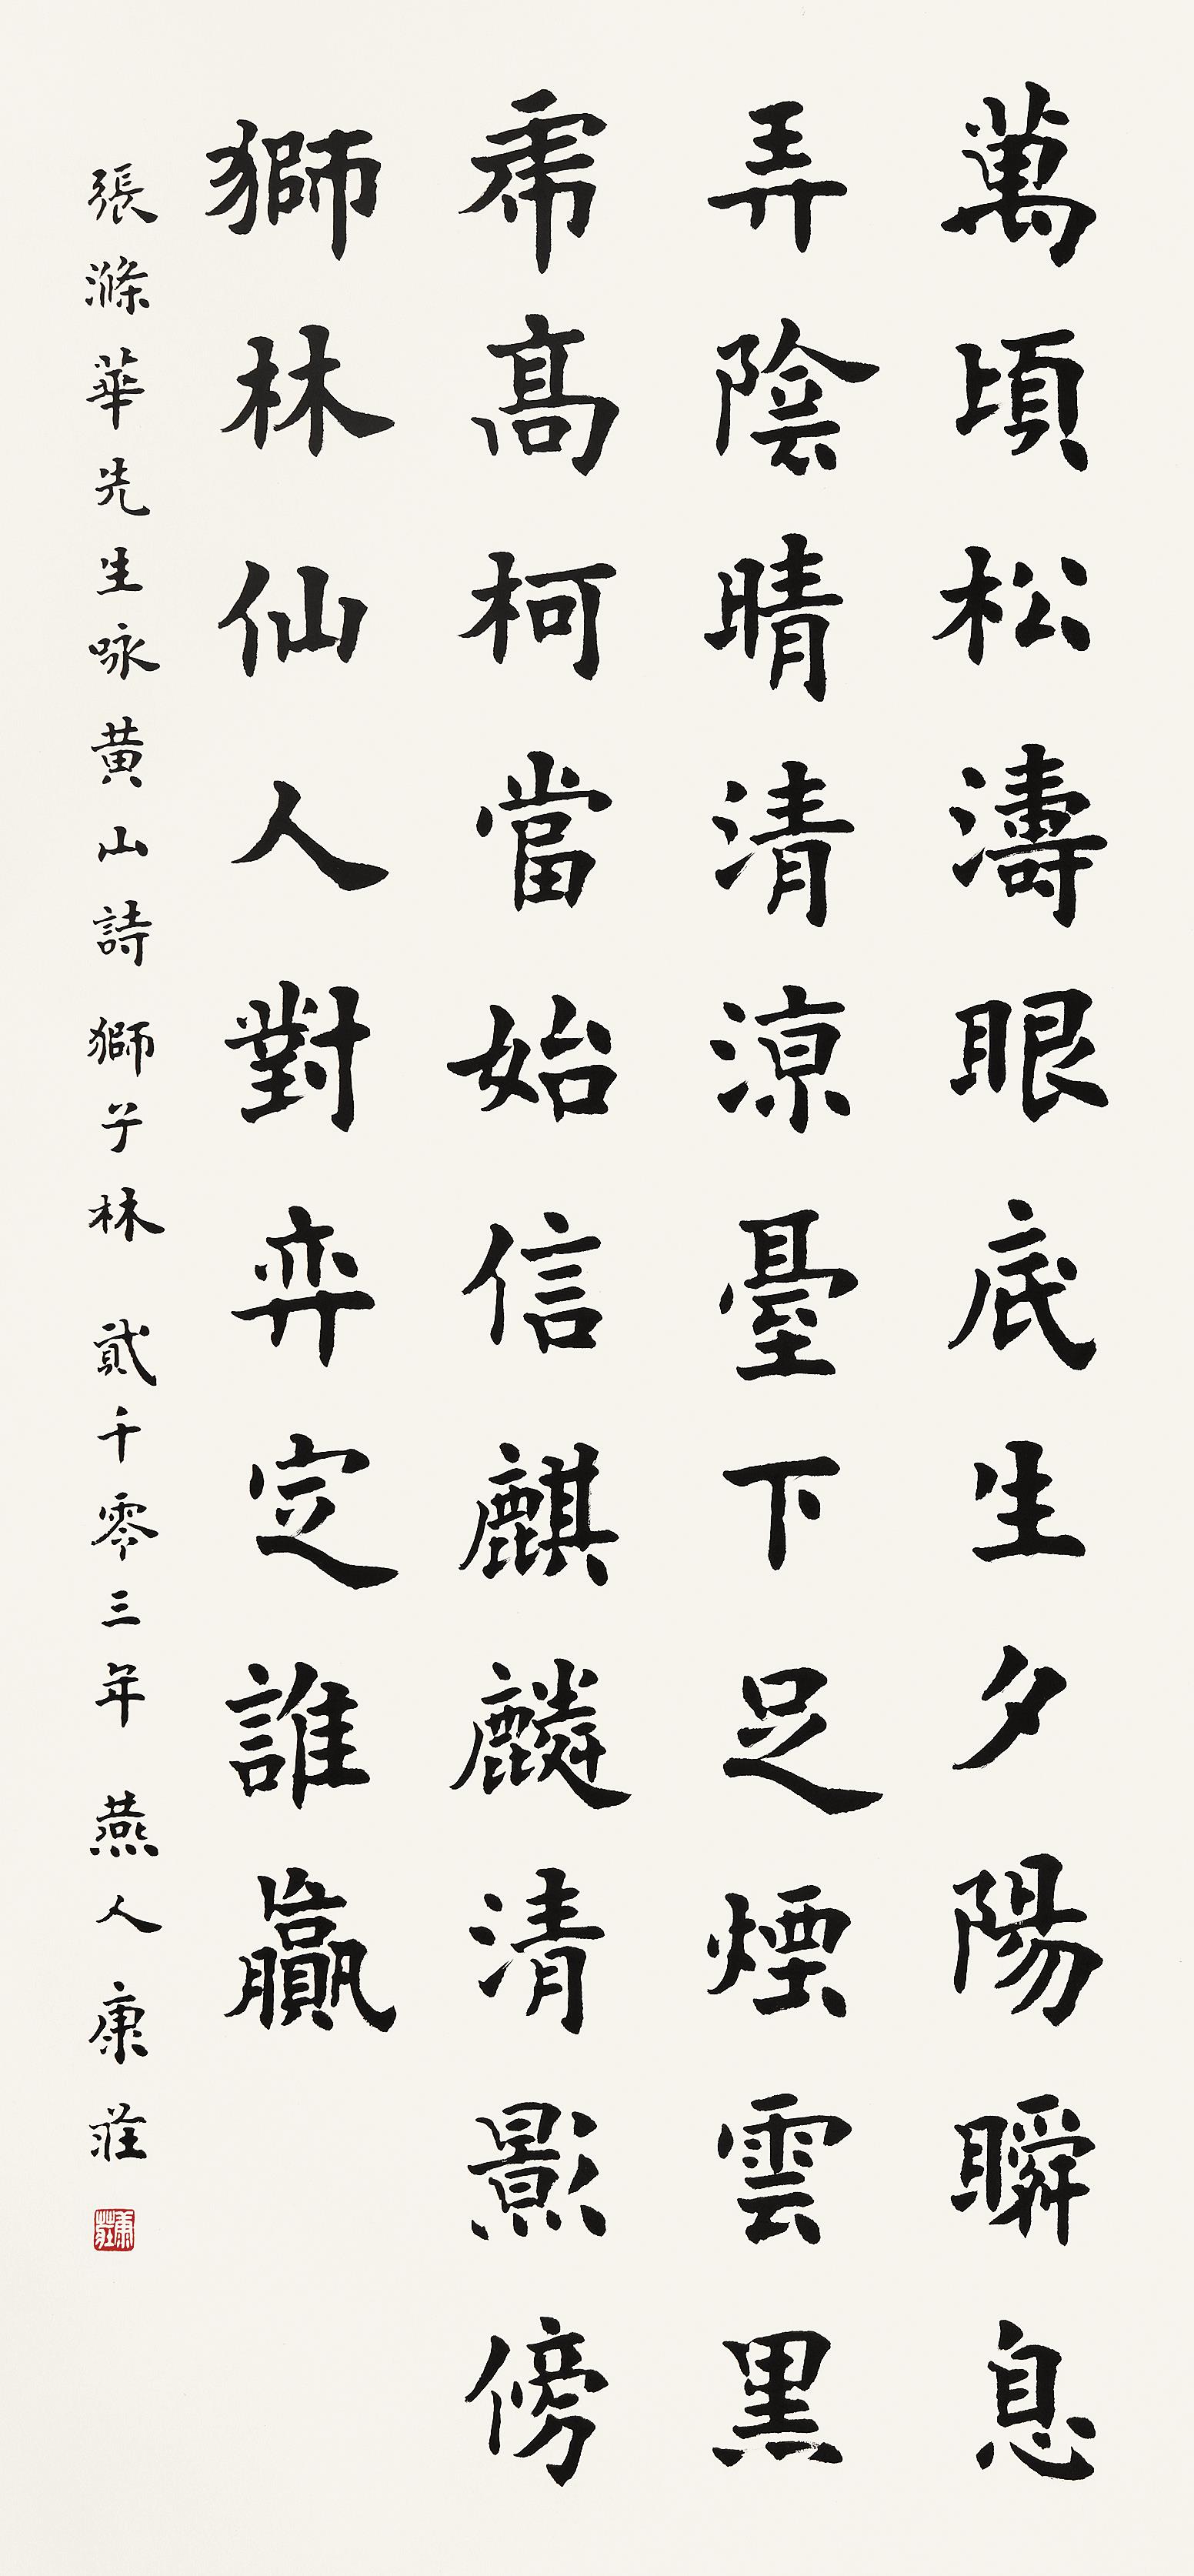 萬頃松濤眼底生夕陽瞬息
弄陰晴清涼臺下足煙雲黑
虎高柯當始信麒麟清影傍
獅林仙人對弈定誰贏
張滌華先生咏黄山詩 獅子林 貳千零三年 燕人 康莊
康莊